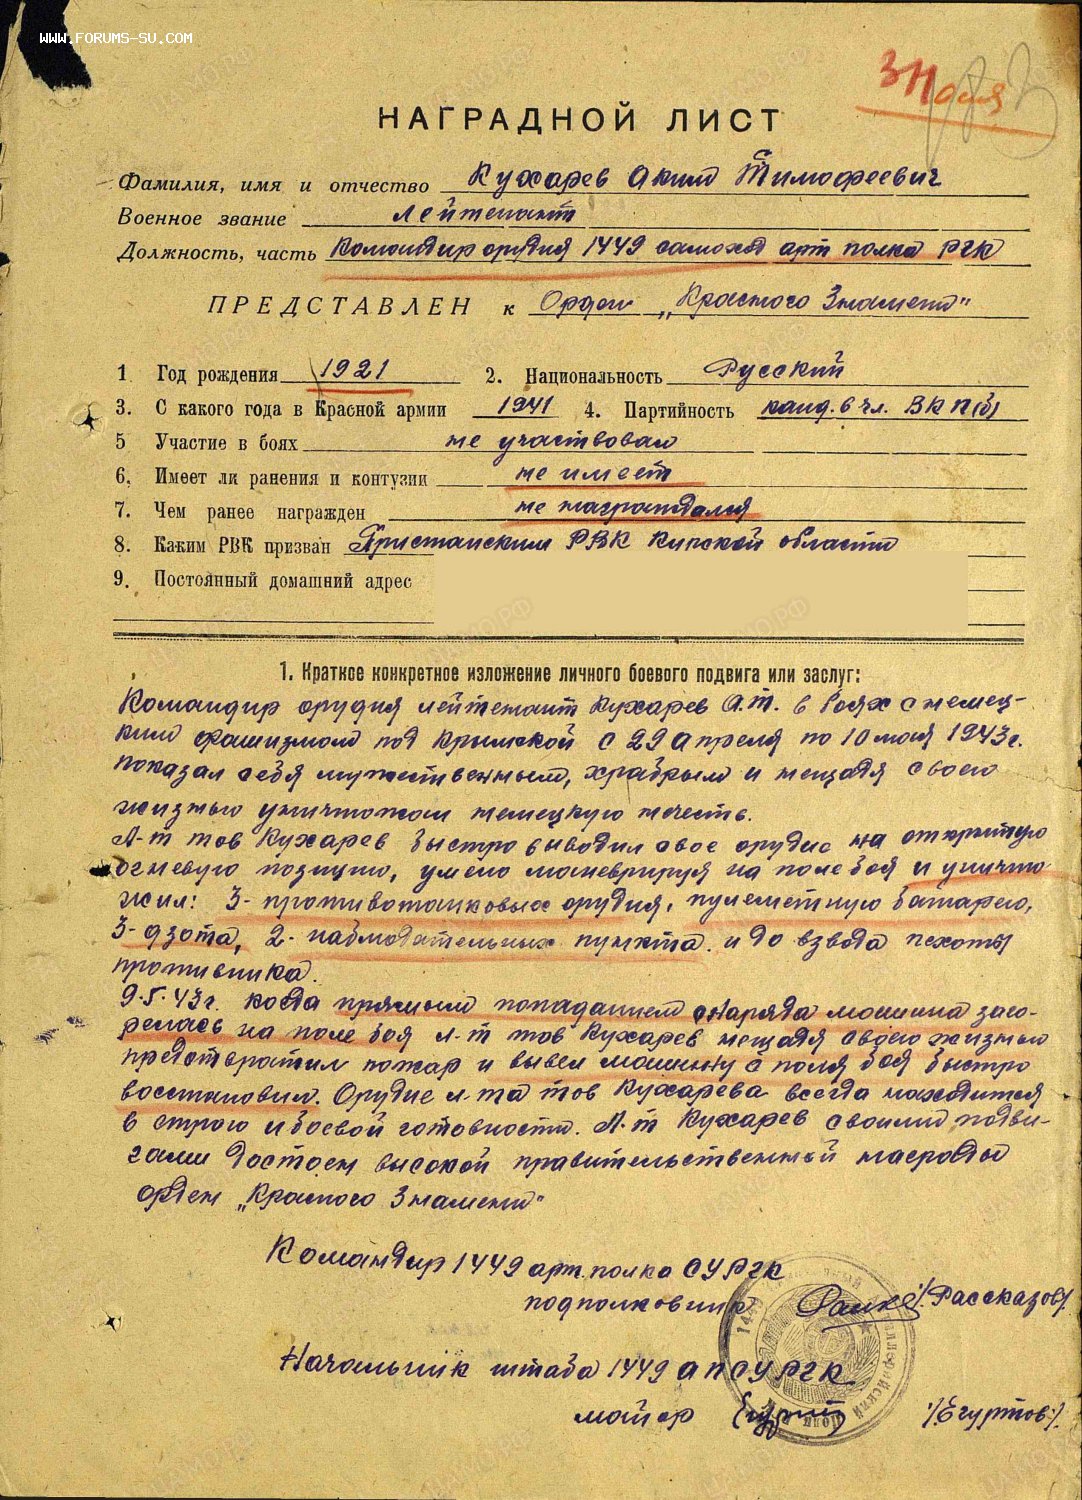 WWW.FORUMS-SU.COM
НАГРАДНОЙ ЛИСТ
Фамилия, имя и отчество Кухарев Аким Тимофеевич
Военное звание лейтенант
Должность, часть Командир орудия 1449 самоход арт полка РГК
ПРЕДСТАВЛЕН к Орден „Красного Знамени"
1 Год рождения 1921 2. Национальность Русский
3. С какого года в Красной армии 1941 4. Партийность канд. в чл. ВКП(б)
5 Участие в боях не участвовал
6. Имеет ли ранения и контузии не имеет
7. Чем ранее награжден не награждался
8. Каким РВК призван РВК области
9. Постоянный домашний адрес
1. Краткое конкретное изложение личного боевого подвига или заслуг:
Командир орудия лейтенант Кухарев А.Т. в боях с немец-
ким фашизмом под Крымской с 29 апреля по 10 мая 1943г.
показал себя мужественным, храбрым и нещадя своею
жизнью уничтожал немецкую нечесть.
Л-т тов Кухарев быстро выводил свое орудие на открытую
огневую позицию, умело маневрируя на поле боя и уничто-
жил: 3-противотанковых орудия, пулеметную батарею,
3-дзота, 2-наблюдательных пункта и до взвода пехоты
противника.
9.5.43г. когда прямым попаданием снаряда машина заго-
релась на поле боя л-т тов Кухарев нещадя своею жизнью
предотвратил пожар и вывел машину с поля боя быстро
восстановил. Орудие л-та тов Кухарева всегда находится
в строю и боевой готовности. Л-т Кухарев своими подви-
гами достоен высокой правительственной награды
орден „Красного Знамени"
Командир 1449 арт. полка СУ РГК
подполковник /Рассказов/
Начальник штаба 1449 АПСУРГК
майор /Егуртов/